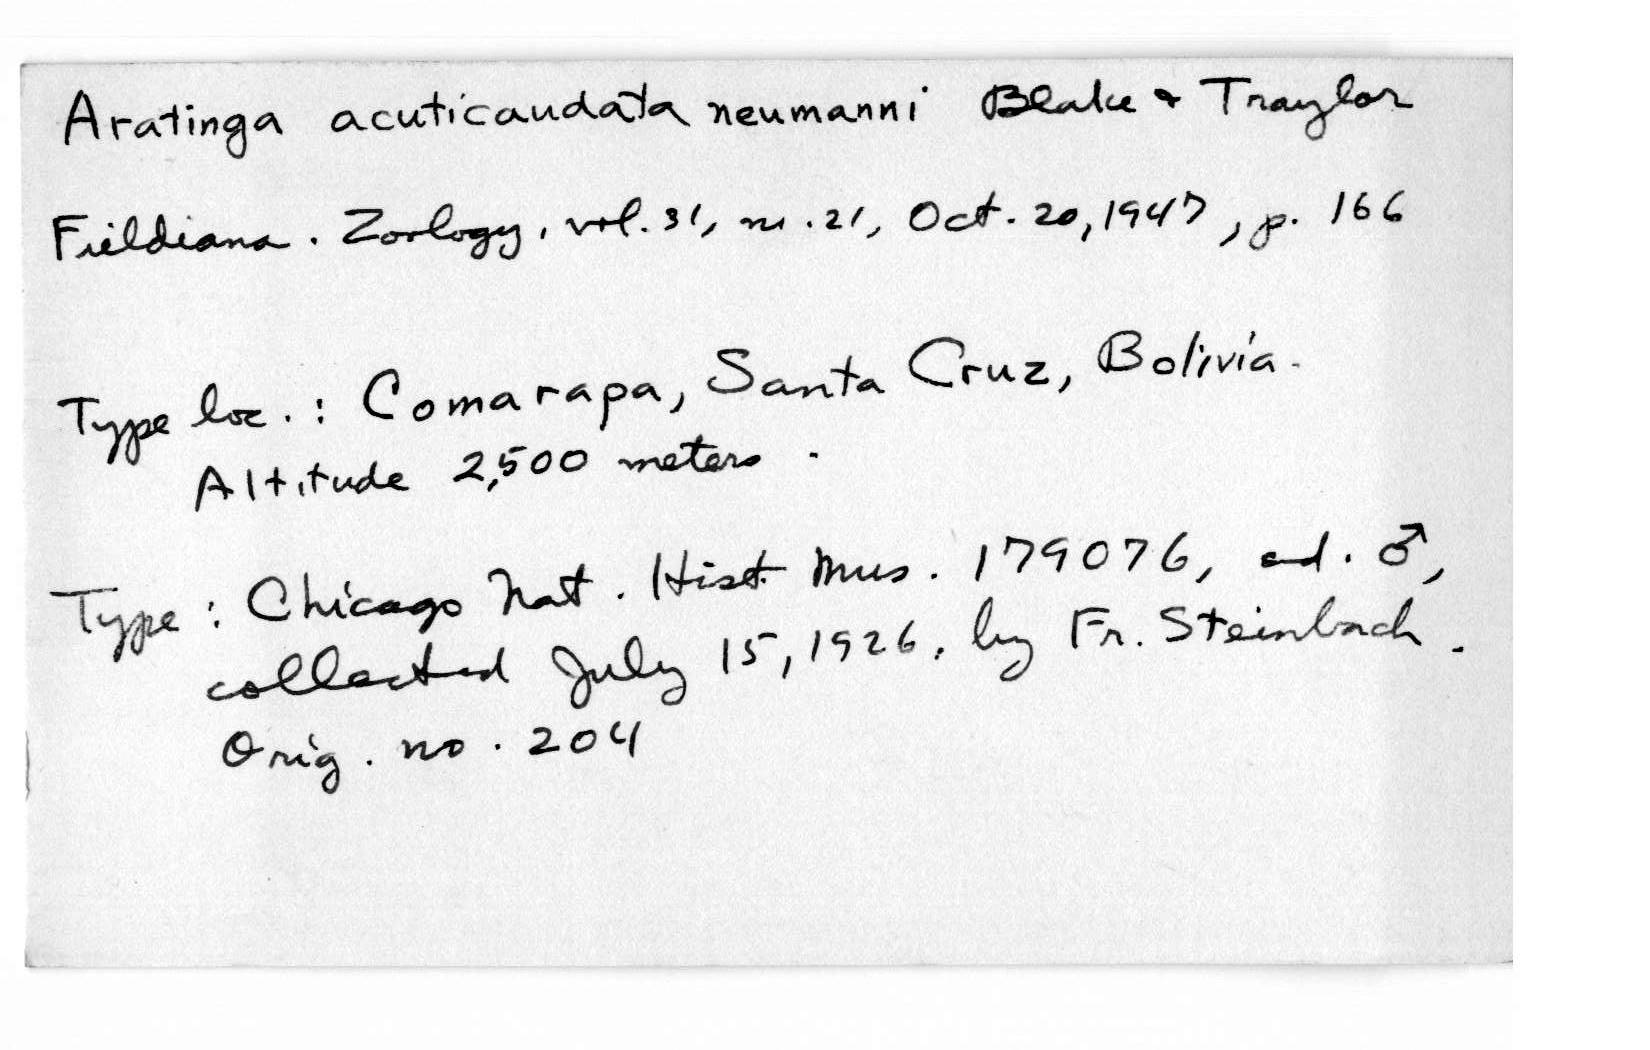 Aratinga acuticaudata neumanni Blake & Traylor
Fieldiana. Zoology, vol. 31, no. 21, Oct. 20, 1947, p. 166
Type loc. : Comarapa, Santa Cruz, Bolivia.
Altitude 2,500 meters.
Type : Chicago Nat. Hist. Mus. 179076, ad. ♂,
collected July 15, 1926, by Fr. Steinbach.
Orig. no. 204